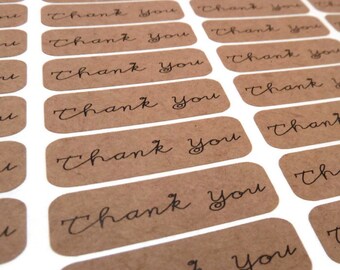 Thank You
Thank You
Thank You
Thank You
Thank You
Thank You
Thank You
Thank You
Thank You
Thank You
Thank You
Thank You
Thank You